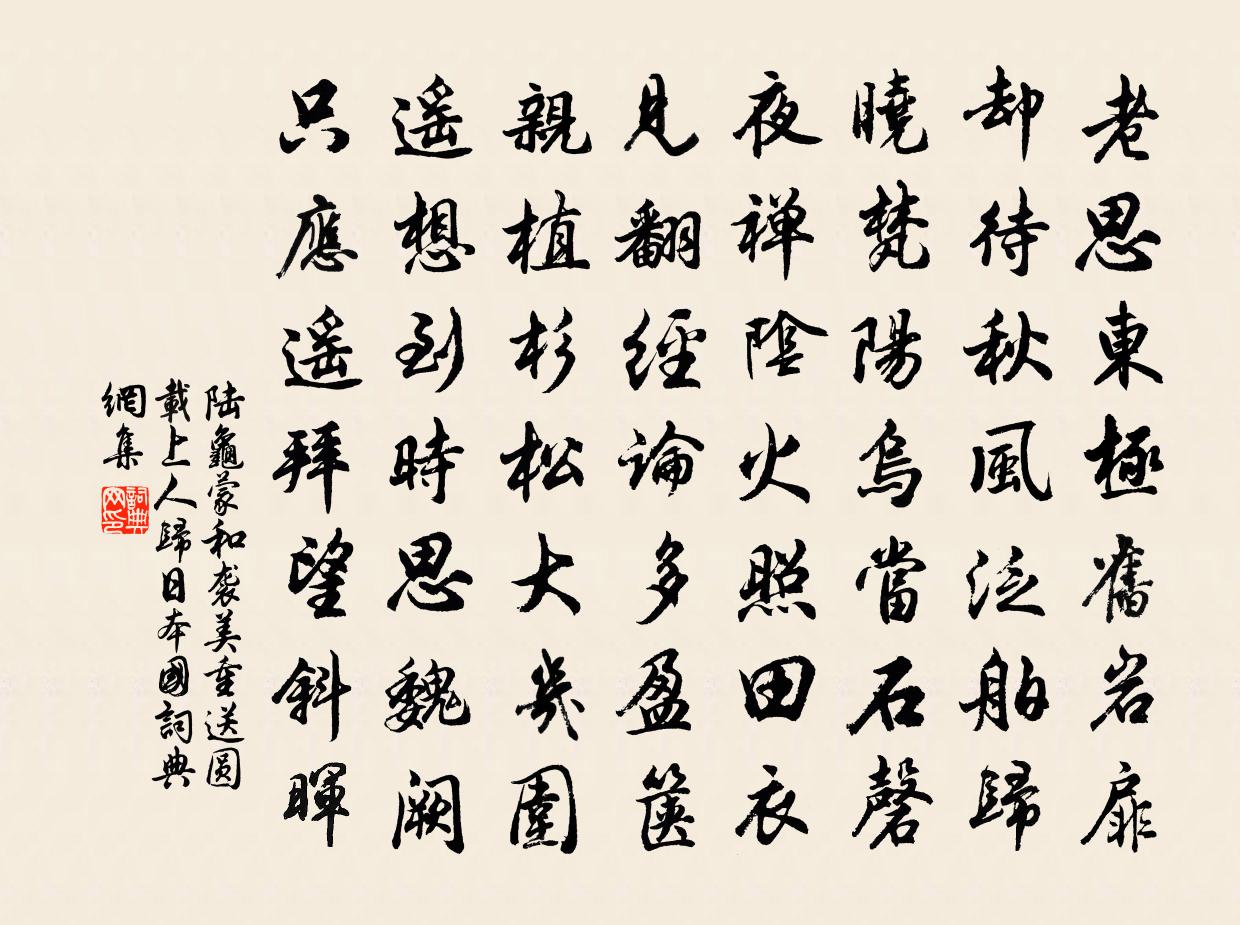 老思東極舊岩扉
却待秋風泛舶歸
曉梵陽烏當石磬
夜禅陰火照田衣
見翻經論多盈箧
親植杉松大幾圍
遥想到時思魏阙
只應遥拜望斜暉
陆龜蒙和袭美重送圆
載上人歸日本國詞典
網集
詞典
网印